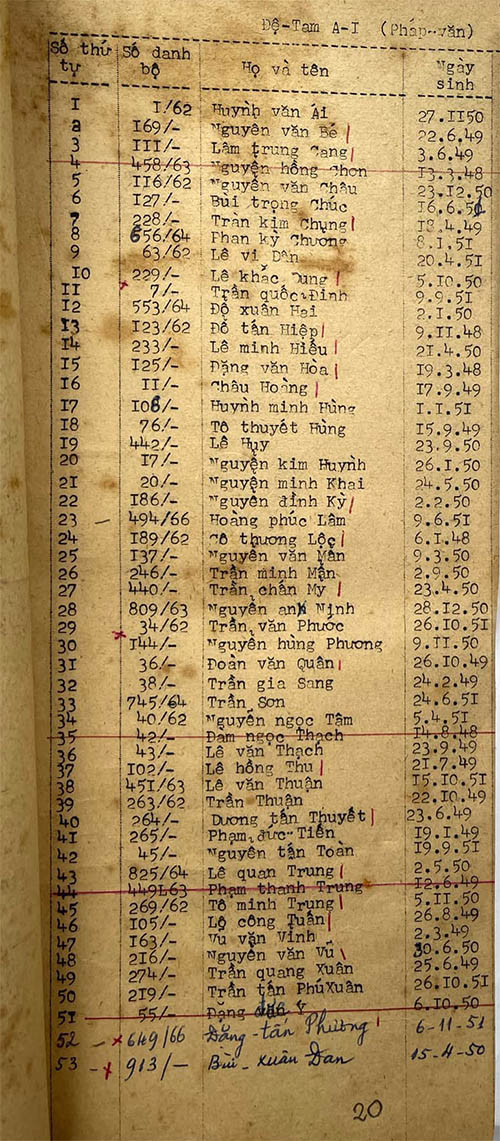 Đệ-Tam A-I (Pháp-văn)
Số thứ tự Số danh bộ Họ và tên Ngày sinh
I I/62 Huỳnh văn Ái 27.II50
2 I69/- Nguyễn văn Bé 22.6.49
3 III/- Lâm trung Cang 3.6.49
4 458/63 Nguyễn hồng Chơn I3.3.48
5 II6/62 Nguyễn văn Châu 23.I2.50
6 I27/- Bùi trọng Chúc I6.6.51
7 228/- Trần kim Chung I8.4.49
8 656/64 Phan kỳ Chương 8.I.5I
9 63/62 Lê vi Dân 20.4.5I
IO 229/- Lê khắc Dung 5.IO.50
II 7/- Trần quốc Đinh 9.9.5I
I2 553/64 Độ xuân Hai 2.I.50
I3 I23/62 Đỗ tấn Hiệp 9.II.48
I4 233/- Lê minh Hiếu 2I.4.50
I5 I25/- Đặng văn Hòa I9.3.48
I6 II/- Châu Hoàng I7.9.49
I7 I08/- Huỳnh minh Hùng I.I.5I
I8 76/- Tô thuyết Hùng I5.9.49
I9 442/- Lê Huy 23.9.50
20 I7/- Nguyễn kim Huỳnh 26.I.50
2I 20/- Nguyễn minh Khai 24.5.50
22 I86/- Nguyễn đình Kỳ 2.2.50
23 - 494/66 Hoàng phúc Lâm 9.6.5I
24 I89/62 Cô thương Lộc 6.I.48
25 I37/- Nguyễn văn Mân 9.3.50
26 246/- Trần minh Mẫn 2.9.50
27 440/- Trần chấn My 23.4.50
28 809/63 Nguyễn anh Ninh 28.I2.50
29 34/62 Trần văn Phước 26.IO.5I
30 I44/- Nguyễn hùng Phương 9.II.50
3I 36/- Đoàn văn Quân 26.IO.49
32 38/- Trần gia Sang 24.2.49
33 745/64 Trần Sơn 24.6.5I
34 40/62 Nguyễn ngọc Tâm 5.4.5I
35 42/- Đàm ngọc Thạch I4.8.48
36 43/- Lê văn Thạch 23.9.49
37 I02/- Lê hồng Thu 2I.7.49
38 45I/63 Lê văn Thuận I5.IO.5I
39 263/62 Trần Thuận 22.IO.49
40 264/- Dương tấn Thuyết 23.6.49
4I 265/- Phạm đức Tiến I9.I.49
42 45/- Nguyễn tấn Toàn I9.9.5I
43 825/64 Lê quan Trung 2.5.50
44 449L63 Phạm thanh Trung I2.6.49
45 269/62 Tô minh Trung 5.II.50
46 I05/- Lê công Tuấn 26.8.49
47 I63/- Vũ văn Vinh 2.3.49
48 2I6/- Nguyễn văn Vũ 30.6.50
49 274/- Trần quang Xuân 25.6.49
50 2I9/- Trần tấn PhúXuân 26.IO.5I
5I 55/- Đặng Ý 6.IO.50
52 - x 649/66 Đặng-tấn Phường 6-11-51
53 - x 913/- Bùi-Xuân Đan 15-4-50
20